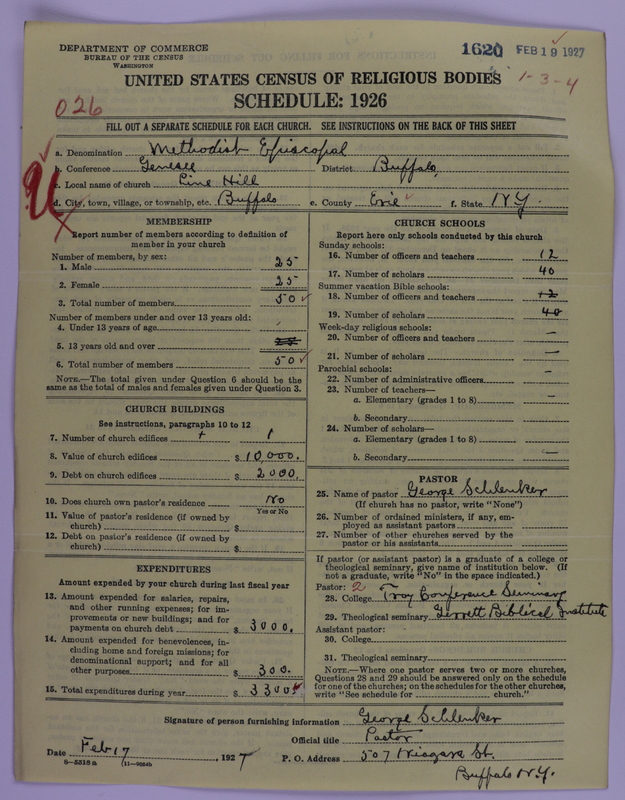 DEPARTMENT OF COMMERCE
BUREAU OF THE CENSUS
WASHINGTON
1620 FEB 19 1927
UNITED STATES CENSUS OF RELIGIOUS BODIES
1-3-4
SCHEDULE: 1926
026
FILL OUT A SEPARATE SCHEDULE FOR EACH CHURCH. SEE INSTRUCTIONS ON THE BACK OF THIS SHEET
a. Denomination Methodist Episcopal
b. Conference Genesee District Buffalo
c. Local name of church Pine Hill
d. City, town, village, or township, etc. Buffalo e. County Erie f. State N.Y.
MEMBERSHIP
Report number of members according to definition of
member in your church
Number of members, by sex:
1. Male 25
2. Female 25
3. Total number of members 50
Number of members under and over 13 years old:
4. Under 13 years of age
5. 13 years old and over
6. Total number of members 50
NOTE.—The total given under Question 6 should be the
same as the total of males and females given under Question 3.
CHURCH BUILDINGS
See instructions, paragraphs 10 to 12
7. Number of church edifices 1
8. Value of church edifices $ 10,000.
9. Debt on church edifices $ 2000.
10. Does church own pastor's residence No
Yes or No
11. Value of pastor's residence (if owned by
church) $
12. Debt on pastor's residence (if owned by
church) $
EXPENDITURES
Amount expended by your church during last fiscal year
13. Amount expended for salaries, repairs,
and other running expenses; for im-
provements or new buildings; and for
payments on church debt $ 3000.
14. Amount expended for benevolences, in-
cluding home and foreign missions; for
denominational support; and for all
other purposes $ 300.
15. Total expenditures during year $ 3300.
CHURCH SCHOOLS
Report here only schools conducted by this church
Sunday schools:
16. Number of officers and teachers 12
17. Number of scholars 40
Summer vacation Bible schools:
18. Number of officers and teachers 12
19. Number of scholars 40
Week-day religious schools:
20. Number of officers and teachers —
21. Number of scholars —
Parochial schools:
22. Number of administrative officers —
23. Number of teachers—
a. Elementary (grades 1 to 8) —
b. Secondary
24. Number of scholars—
a. Elementary (grades 1 to 8)
b. Secondary —
PASTOR
25. Name of pastor George Schlenker
(If church has no pastor, write "None")
26. Number of ordained ministers, if any, em-
ployed as assistant pastors
27. Number of other churches served by the
pastor or his assistants
If pastor (or assistant pastor) is a graduate of a college or
theological seminary, give name of institution below. (If
not a graduate, write "No" in the space indicated.)
Pastor: 2
28. College Troy Conference Seminary
29. Theological seminary Garrett Biblical Institute
Assistant pastor:
30. College
31. Theological seminary
NOTE.—Where one pastor serves two or more churches,
Questions 28 and 29 should be answered only on the schedule
for one of the churches; on the schedules for the other churches,
write "See schedule for church."
Signature of person furnishing information George Schlenker
Official title Pastor
Date Feb 17, 1927 P. O. Address 507 Niagara St.
8—5518a (11—9554b)
Buffalo N.Y.